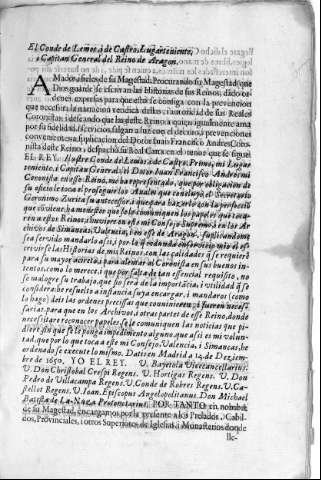 El Conde de Lemos, i de Castro, Lugarteniente,
i Capitan General del Reino de Aragon.
AMados i fieles de su Magestad. Procurando su Magestad (que
Dios guarde) se escrivan las Historias de sus Reinos, à dado or-
denes expressos para que esto se consiga con la prevencion
que necessita la narracion veridica dellos, i autoridad de sus Reales
Coronistas; i deseando que las deste Reino (a quien igualmente ama
por su fidelidad, i servicios) salgan a luz con el decoro, i prevenciones
convenientes; a suplicacion del Dotor Iuan Francisco Andres Coro-
nista deste Reino, despachò su Real Carta en el tenor que se sigue.
EL REY. Illustre Conde de Lemos, i de Castro, Primo, mi Lugar-
teniente, i Capitan General; el Dotor Iuan Francisco Andres mi
Coronista en esse Reino, me ha representado, que por obligacion de
su oficio le toca el proseguir los Anales que concluyò el Secretario
Geronimo Zurita su antecessor; i que para hazerlo con la
que conviene, ha menester que se le comuniquen los papeles que toca-
ren a estos Reinos, i huviere en este mi Consejo Supremo, en los Ar-
chivos de Simancas, Valencia, i en esse de Aragon, suplicandome
sea servido mandarlo assi, i por lo que redunda en servicio mio el es-
crevirse las Historias de mis Reinos, con las calidades que se requieren
para su mayor acierto, i para alentar al Coronista en sus buenos in-
tentos, como lo merece, i que por falta de tan essencial requisito, no
se malogre su trabajo, que seria de la importancia, i utilidad que se
considera; he resuelto a instancia suya encargar, i mandaros (como
lo hago) deis las ordenes precissas que convinieren, i fueren neces-
sarias para que en los Archivos, i otras partes de esse Reino, donde
necessitare reconocer papeles, se le comuniquen las noticias que pi-
diere, sin que se le ponga impedimento alguno, que assi es mi volun-
tad, que por lo que toca a este mi Consejo, Valencia, i Simancas, he
ordenado se execute lo mismo. Dat. en Madrid a 14. de Dezièm-
bre de 1650. YO EL REY. V. Bayetola Vicecancellarius.
V. Don Christobal Crespi Regens. V. Hortigas Regens. V. Don
Pedro de Villacampa Regens. V. Conde de Robres Regens. V. Ca-
pellot Regens. V. Ioan. Episcopus Angelopolitanus. Don Michael
Batista de La-Nuza Protonotarius. POR TANTO en nombre
de su Magestad, encargamos por la presente a los Prelados, Cabil-
dos, Provinciales, i otros Superiores de Iglesias, i Monasterios donde
lle-